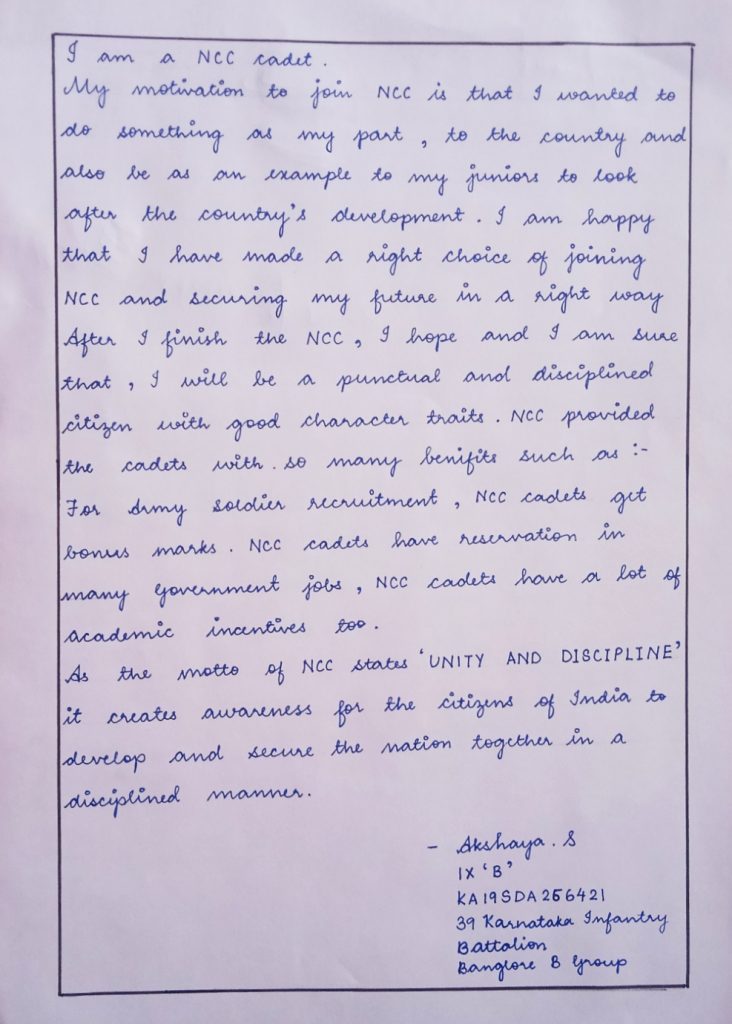 I am a NCC cadet.
My motivation to join NCC is that I wanted to
do something as my part, to the country and
also be as an example to my juniors to look
after the country's development. I am happy
that I have made a right choice of joining
NCC and securing my future in a right way
After I finish the NCC, I hope and I am sure
that, I will be a punctual and disciplined
citizen with good character traits. NCC provided
the cadets with. so many benifits such as :-
For Army soldier recruitment, NCC cadets get
bonus marks. NCC cadets have reservation in
many Government jobs, NCC cadets have a lot of
academic incentives too.
As the motto of NCC states 'UNITY AND DISCIPLINE'
it creates awareness for the citizens of India to
develop and secure the nation together in a
disciplined manner.
- Akshaya. S
IX 'B'
KA19SDA256421
39 Karnataka Infantry
Battalion
Banglore B Group